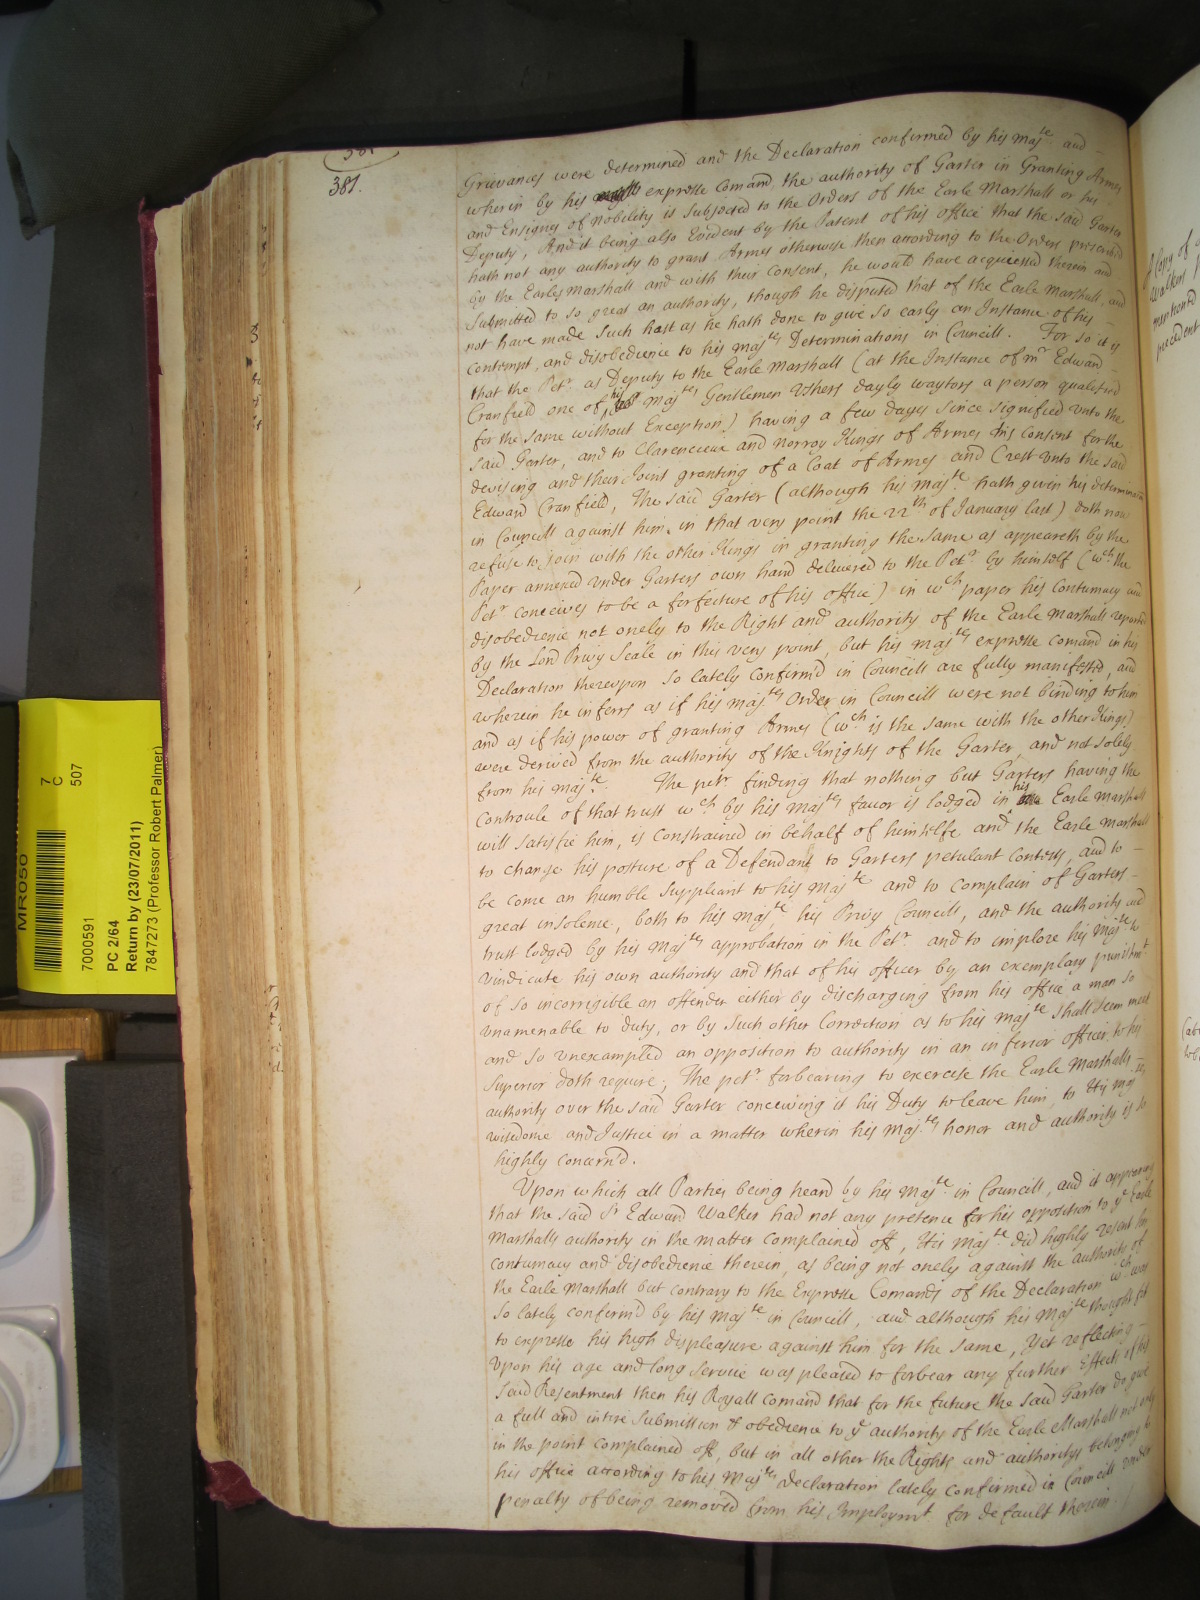 381.
Grievances were determined and the Declaration confirmed by his Maj^te and
wherein by his expresse Comand the authority of Garter in Granting Armes
and Ensignes of Nobility is Subjected to the Orders of the Earle Marshall or his
Deputy, And it being also Evident by the Patent of his office that the said Garter
hath not any authority to grant Armes otherwise then according to the Orders prescrib'd
by the Earles Marshall and with their Consent, he would have acquiesced therein and
Submitted to so great an authority, though he disputed that of the Earle Marshall, and
not have made such hast as he hath done to give so early an Instance of his
contempt, and disobedience to his Maj^tes Determinations in Councill. For so it is
that the Pet^r. as Deputy to the Earle Marshall (at the Instance of m^r Edward
Cranfield one of his Maj^tes Gentlemen Ushers dayly waytors a person qualified
for the same without Exception) having a few dayes since signified unto the
said Garter, and to Clarencieux and Norroy Kings of Armes his Consent for the
devising and their Joint granting of a Coat of Armes and Crest unto the said
Edward Cranfield, The said Garter (although his Maj^te hath given his determinacon
in Councill against him in that very point the 22^th of January last) doth now
refuse to Join with the other Kings in granting the same as appeareth by the
Paper annexed under Garters own hand delivered to the Pet^r. by himself (w^ch the
Pet^r conceives to be a forfeiture of his office) in w^ch paper his Contumacy and
disobedience not onely to the Right and authority of the Earle Marshall reported
by the Lord Privy Seale in this very point, but his Maj^tes expresse comand in his
Declaration thereupon so lately Confirm'd in Councill are fully manifested, and
wherein he inferrs as if his Maj^tes Order in Councill were not binding to him
and as if his power of granting Armes (w^ch is the same with the other Kings)
were derived from the authority of the Knights of the Garter, and not solely
from his Maj^te. The pet^r finding that nothing but Garters having the
Controule of that trust w^ch by his Maj^tes favor is lodged in his Earle Marshall
will satisfie him, is constrained in behalf of himselfe and the Earle Marshall
to change his posture of a Defendant to Garters petulant Contests, and to
be come an humble Suppliant to his Maj^te and to complain of Garters
great insolence, both to his Maj^te his Privy Councill, and the authority and
trust lodged by his Maj^tes approbation in the Pet^r. and to implore his Maj^te to
vindicate his own authority and that of his officer by an exemplary punishm^t
of so incorrigible an offender either by discharging from his office a man so
unamenable to duty, or by such other Correction as to his Maj^te shall seem meet
and so unexampled an opposition to authority in an inferior officer to his
Superior doth require; The pet^r forbearing to exercise the Earle Marshalls
authority over the said Garter conceiving it his Duty to leave him, to His Maj^tes
wisedome and Justice in a matter wherein his Maj^tes honor and authority is so
highly concern'd.
Upon which all Parties being heard by his Maj^te in Councill, and it appearing
that the said S^r Edward Walker had not any pretence for his opposition to y^e Earle
Marshalls authority in the matter complained off, His Maj^te did highly resent his
contumacy and disobedience therein, as being not onely against the authority of
the Earle Marshall but contrary to the Expresse Comands of the Declaration w^ch was
so lately confirm'd by his Maj^te in Councill, and although his Maj^te thought fit
to expresse his high displeasure against him for the same, Yet reflecting
upon his age and long service was pleased to forbear any further Effects of his
said Resentment then his Royall Comand that for the future the said Garter do give
a full and intire Submission & obedience to y^e authority of the Earle Marshall not only
in the point complained off, but in all other the Rights and authoritys belonging to
his office according to his Maj^tes declaration lately confirmed in Councill under
penalty of being removed from his Imploym^t for default therein.
MR050
7
C
507
7000591
PC 2/64
Return by (23/07/2011)
7847273 (Professor Robert Palmer)
Copy of
Walkers
mentioned
precedent